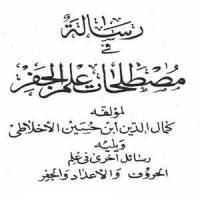 رسالة
في
مصطلحات علم الجفر
لمؤلفه
كمال الدين ابن حسين الأخلاطي
ويليه
رسائل أخرى في علم
الحروف والأعداد والجفر